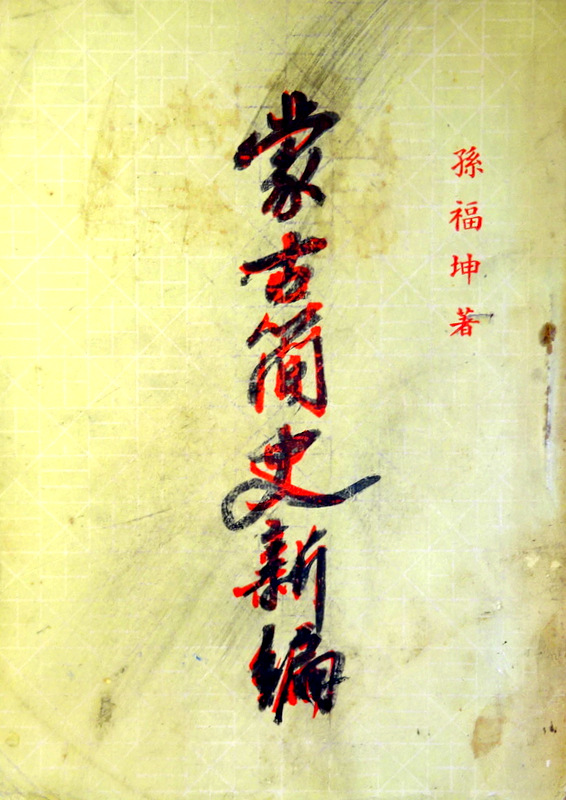 孫福坤著
蒙古簡史新編